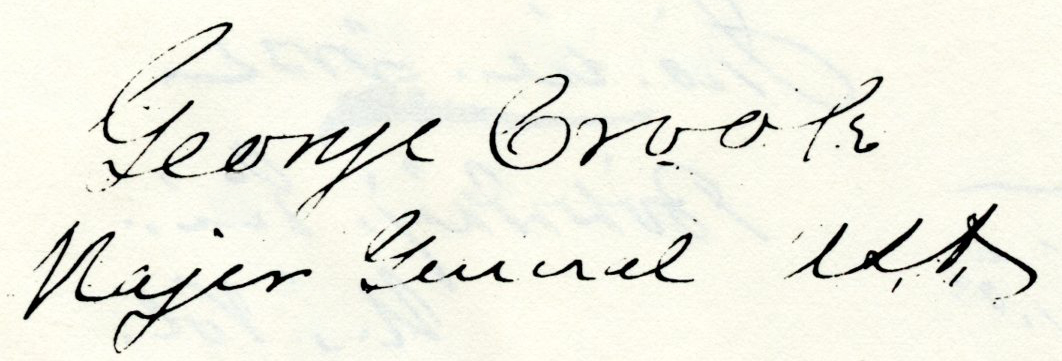 George Crook
Major General U.S.A.